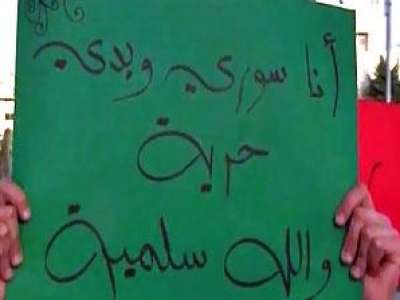 أنا سوري وبدي
حرية
والله سلمية